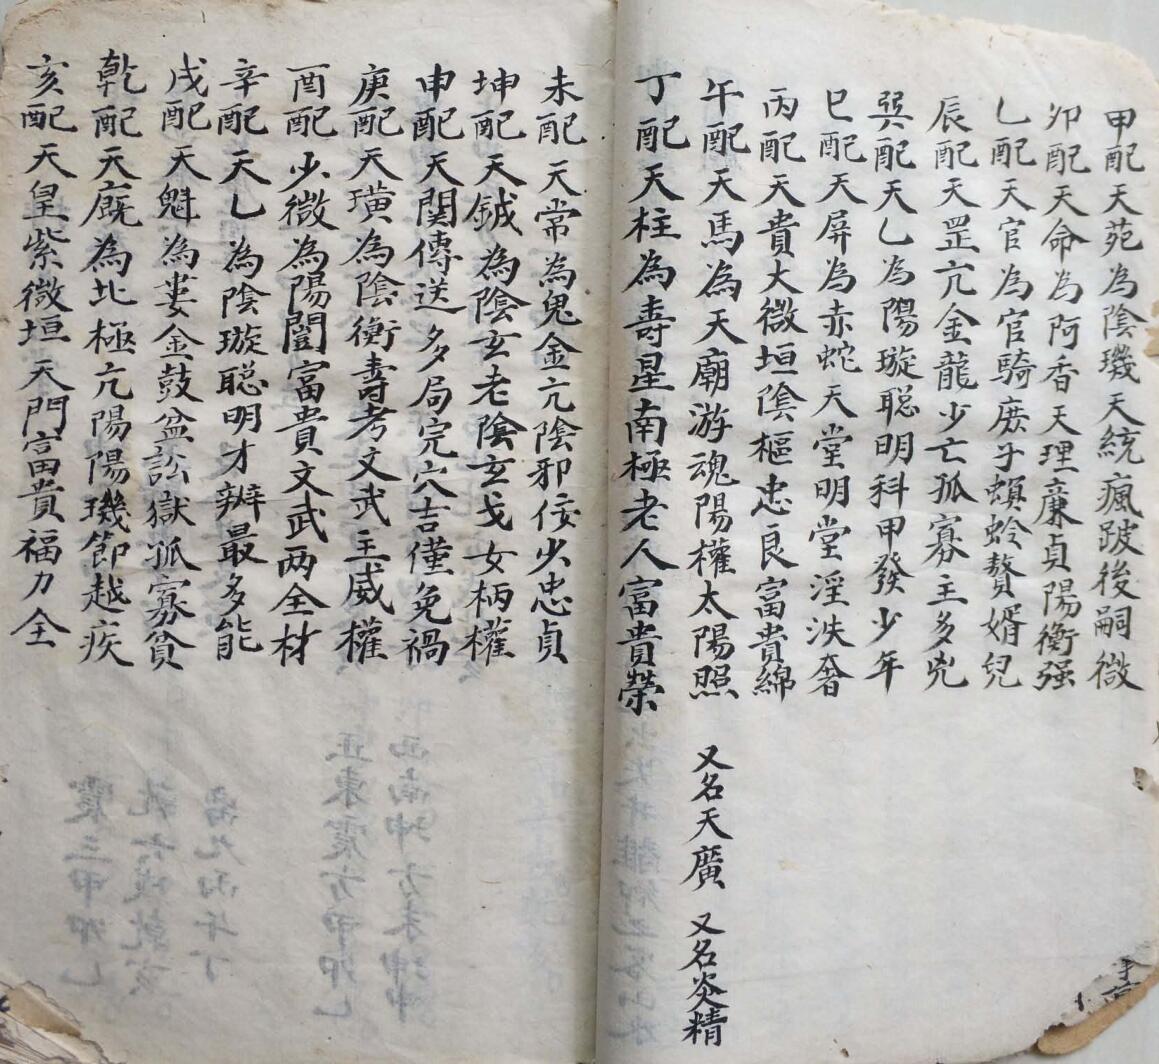 甲配天苑為陰璣天統瘋跛後嗣微
卯配天命為阿香天理廉貞陽衡强
乚配天官為官騎庶子螟蛉贅婿兒
辰配天罡亢金龍少亡孤寡主多兇
巽配天乚為陽璇聪明科甲發少年
巳配天屏為赤蛇天堂明堂淫泆奢
丙配天貴大微垣陰樞忠良富貴綿
午配天馬為天廟游魂陽權太陽照 又名天廣 又名炎精
丁配天柱為壽星南極老人富貴榮
未配天常為鬼金亢陰邪佞少忠貞
坤配天鉞為陰玄老陰玄戈女柄權
申配天関傳送多局完穴吉僅免禍
庚配天璜為陰衡壽考文武主威權
酉配少微為陽闓富貴文武两全材
辛配天乚為陰璇聪明才辨最多能
戌配天魁為婁金鼓盆訟獄孤寡貧
乾配天廐為北極亢陽陽璣節越疾
亥配天皇紫微垣天門富貴福力全